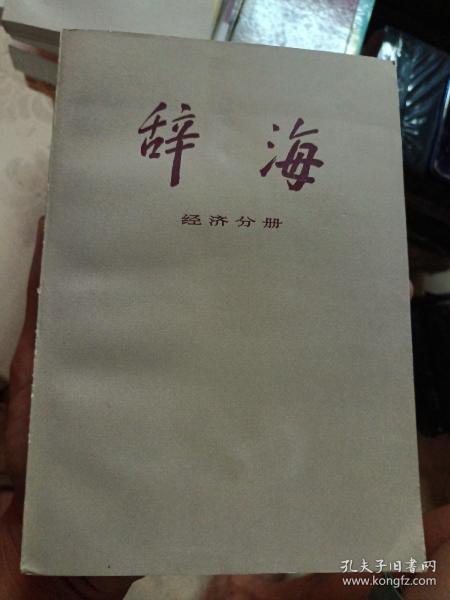 辞海
经济分册
孔夫子旧书网
www.kongfz.com